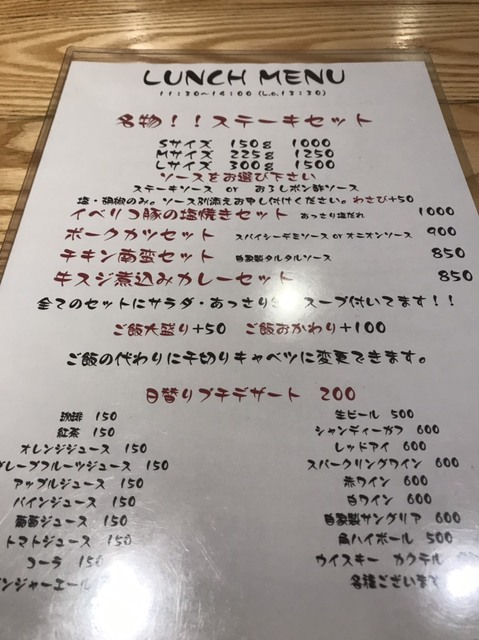 LUNCH MENU
11:30~14:00 (L.o.13:30)
名物!!ステーキセット
Sサイズ 150g 1000
Mサイズ 225g 1250
Lサイズ 300g 1500
ソースをお選び下さい
ステーキソース or おろしポン酢ソース
塩・胡椒のみ。ソース別添えお申し付けください。わさび+50
イベリコ豚の塩焼きセット あっさり塩だれ 1000
ポークカツセット スパイシーデミソース or オニオンソース 900
チキン南蛮セット 自家製タルタルソース 850
牛スジ煮込みカレーセット 850
全てのセットにサラダ・あっさり スープ付いてます!!
ご飯大盛り+50 ご飯おかわり+100
ご飯の代わりに千切りキャベツに変更できます。
日替りプチデザート 200
珈琲 150
紅茶 150
オレンジジュース 150
グレープフルーツジュース 150
アップルジュース 150
パインジュース 150
葡萄ジュース 150
トマトジュース 150
コーラ 150
ンジャーエール
生ビール 500
シャンディーガフ 600
レッドアイ 600
スパークリングワイン 600
赤ワイン 600
白ワイン 600
自家製サングリア 600
角ハイボール 500
ウイスキー カクテル
各種ございます